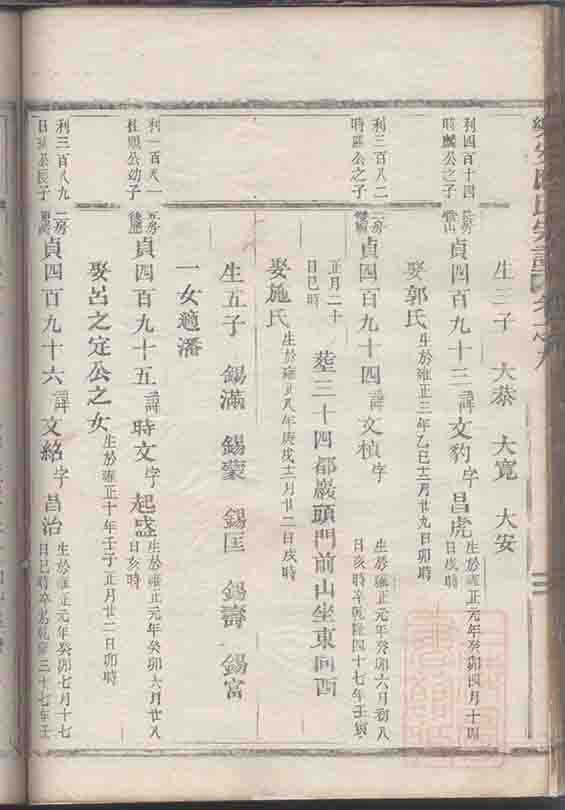 生三子 大恭 大寬 大安
利四百十四
時麟公之子
貞四百九十三 諱文豹 字昌虎 生於雍正元年癸卯四月十四
日戌時
娶郭氏 生於雍正三年乙巳十二月廿九日卯時
利三百八二
時 公之子
二房
貞四百九十四 諱文楨 字 生於雍正元年癸卯六月初八
日亥時卒乾隆四十七年壬寅
正月二十
日巳時
塟三十四都巖頭門前山坐東向酉
娶施氏 生於雍正八年庚戌十二月廿二日戌時
生五子 錫滿 錫蒙 錫匡 錫壽 錫富
一女適潘
利一百八一
桂 公幼子
貞四百九十五 諱時文 字起盛 生於雍正元年癸卯六月廿八
日亥時
娶呂之定公之女 生於雍正十年壬子正月廿二日卯時
利三百八九
日 公長子
二房
貞四百九十六 諱文紹 字昌治 生於雍正元年癸卯七月十七
日巳時卒 乾隆三十七年壬